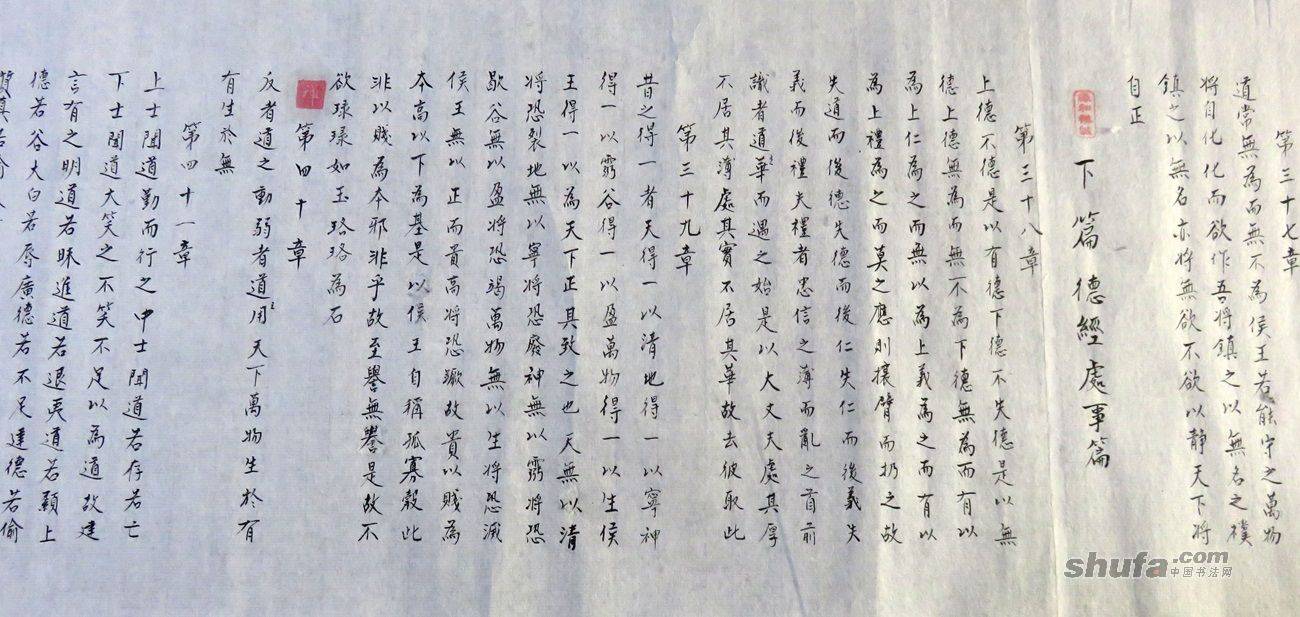 第三十七章
道常無為而無不為侯王若能守之萬物
將自化化而欲作吾將鎮之以無名之樸
鎮之以無名亦將無欲不欲以靜天下將
自正
下篇 德經處事篇
第三十八章
上德不德是以有德下德不失德是以無
德上德無為而無不為下德無為而有以
為上仁為之而無以為上義為之而有以
為上禮為之而莫之應則攘臂而扔之故
失道而後德失德而後仁失仁而後義失
義而後禮夫禮者忠信之薄而亂之首前
識者道之華而遇之始是以大丈夫處其厚
不居其薄處其實不居其華故去彼取此
第三十九章
昔之得一者天得一以清地得一以寧神
得一以靈谷得一以盈萬物得一以生侯
王得一以為天下正其致之也天無以清
將恐裂地無以寧將恐廢神無以靈將恐
歇谷無以盈將恐竭萬物無以生將恐滅
侯王無以正而貴高將恐蹶故貴以賤為
本高以下為基是以侯王自稱孤寡穀此
非以賤為本邪非乎故至譽無譽是故不
欲琭琭如玉珞珞為石
第四十章
反者道之動弱者道之用天下萬物生於有
有生於無
第四十一章
上士聞道勤而行之中士聞道若存若亡
下士聞道大笑之不笑不足以為道故建
言有之明道若昧進道若退夷道若纇上
德若谷大白若辱廣德若不足建德若偷
質真若渝
shufa.com
中国书法网